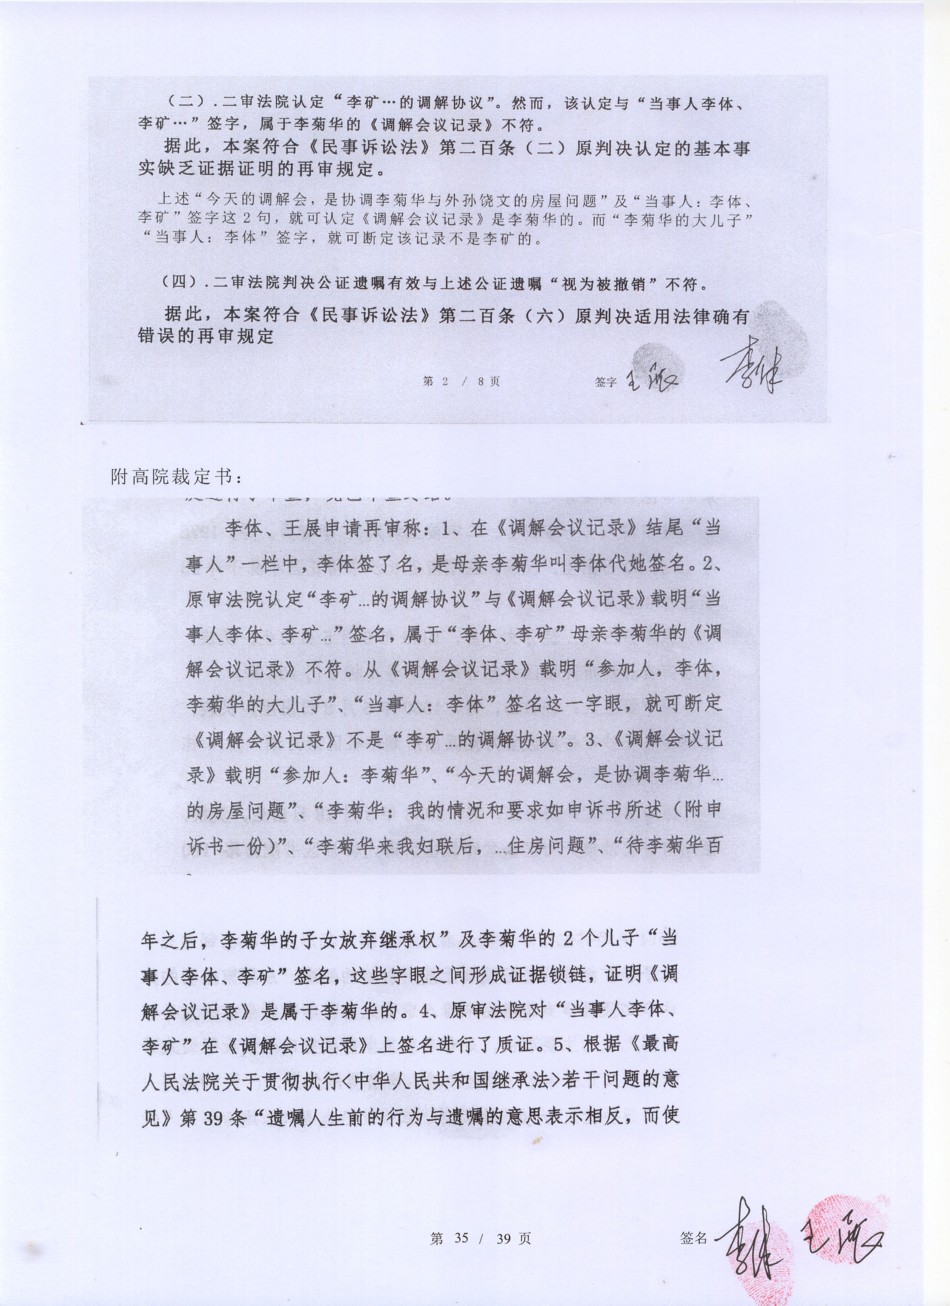 （二）.二审法院认定“李矿…的调解协议”。然而，该认定与“当事人李体、
李矿…”签字，属于李菊华的《调解会议记录》不符。
据此，本案符合《民事诉讼法》第二百条（二）原判决认定的基本事
实缺乏证据证明的再审规定。
上述“今天的调解会，是协调李菊华与外孙饶文的房屋问题”及“当事人：李体、
李矿”签字这2句，就可认定《调解会议记录》是李菊华的。而“李菊华的大儿子”
“当事人：李体”签字，就可断定该记录不是李矿的。
（四）.二审法院判决公证遗嘱有效与上述公证遗嘱“视为被撤销”不符。
据此，本案符合《民事诉讼法》第二百条（六）原判决适用法律确有
错误的再审规定
第 2 / 8 页 签字 王展 李体
附高院裁定书：
李体、王展申请再审称：1、在《调解会议记录》结尾“当
事人”一栏中，李体签了名，是母亲李菊华叫李体代她签名。2、
原审法院认定“李矿…的调解协议”与《调解会议记录》载明“当
事人李体、李矿…”签名，属于“李体、李矿”母亲李菊华的《调
解会议记录》不符。从《调解会议记录》载明“参加人，李体，
李菊华的大儿子”、“当事人：李体”签名这一字眼，就可断定
《调解会议记录》不是“李矿…的调解协议”。3、《调解会议记
录》载明“参加人：李菊华”、“今天的调解会，是协调李菊华…
的房屋问题”、“李菊华：我的情况和要求如申诉书所述（附申
诉书一份）”、“李菊华来我妇联后，…住房问题”、“待李菊华百
年之后，李菊华的子女放弃继承权”及李菊华的2个儿子“当
事人李体、李矿”签名，这些字眼之间形成证据锁链，证明《调
解会议记录》是属于李菊华的。4、原审法院对“当事人李体、
李矿”在《调解会议记录》上签名进行了质证。5、根据《最高
人民法院关于贯彻执行<中华人民共和国继承法>若干问题的意
见》第39条“遗嘱人生前的行为与遗嘱的意思表示相反，而使
第 35 / 39 页 签名 李体 王展